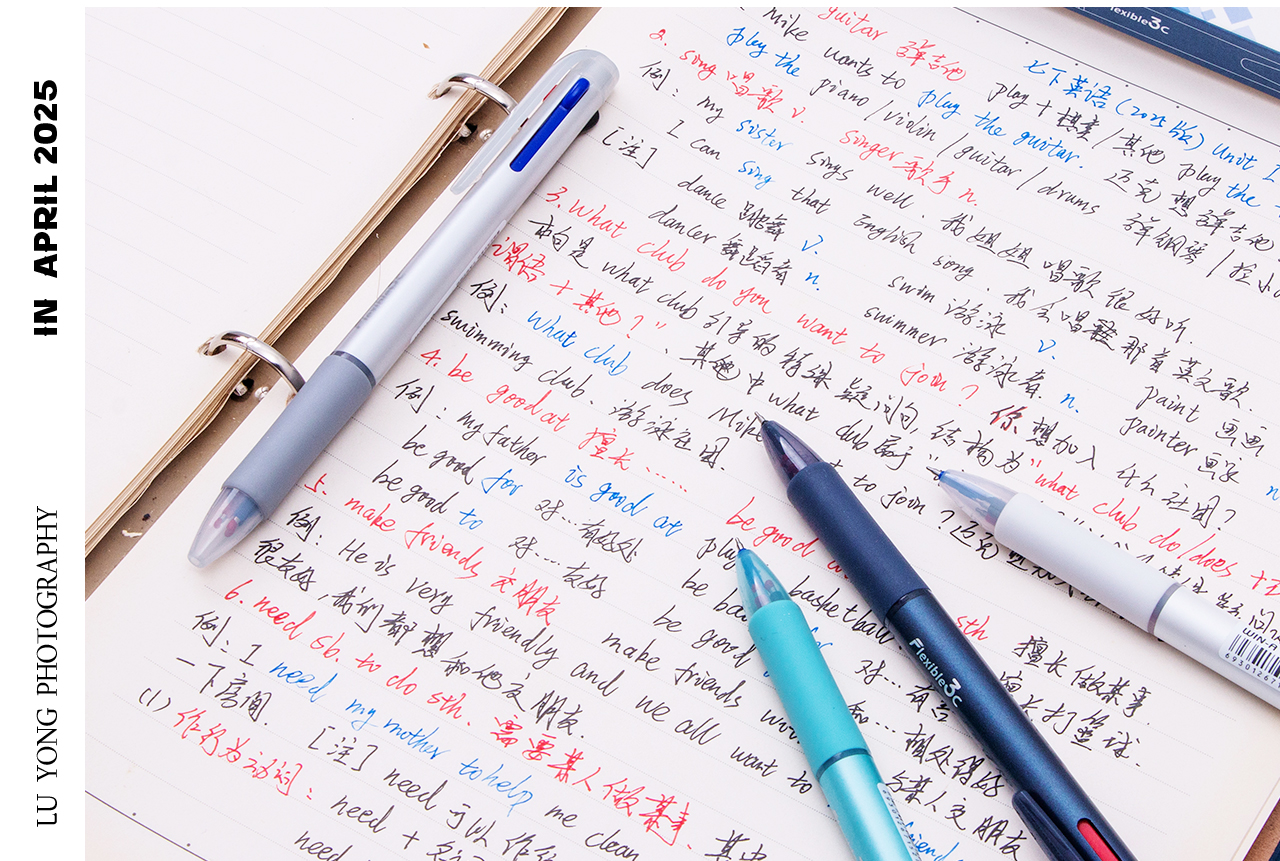 IN APRIL 2025
LU YONG PHOTOGRAPHY
Flexible3c
七下英语 (2025版) Unit 1
guitar 弹吉他
Mike wants to play the guitar. 迈克想弹吉他
play the piano/violin/guitar/drums 弹钢琴/拉小
play + 棋类/其他 play the
2. sing 唱歌 v. singer 歌手 n.
例: my sister sings well. 我姐姐唱歌很好听.
I can sing that English song. 我会唱那首英文歌.
[注] dance 跳舞 v. swim 游泳 v. paint 画画
dancer 舞蹈者 n. swimmer 游泳者 n. painter 画家 n
3. What club do you want to join? 你想加入什么社团?
本句是 what club 引导的特殊疑问句, 结构为 "what club do/does +
谓语 + 其他?". 其中 what club 属于
例: What club does Mike to join? 迈克
swimming club. 游泳社团.
4. be good at 擅长...... be good sth 擅长做某事.
例: my father is good at play basketball 擅长打篮球.
be good for 对...有好处 be ba for 对...有害
be good to 对...友好 be good 和...相处得好
5. make friends 交朋友 make friends with 与某人交朋友
例: He is very friendly and we all want to friend
很友好, 我们都想和他交朋友.
6. need sb. to do sth. 需要某人做某事.
例: I need my mother to help me clean
一下房间. [注] need 可以作
(1) 作行为动词: need + need
Flexible3c
WIN.A
69301267